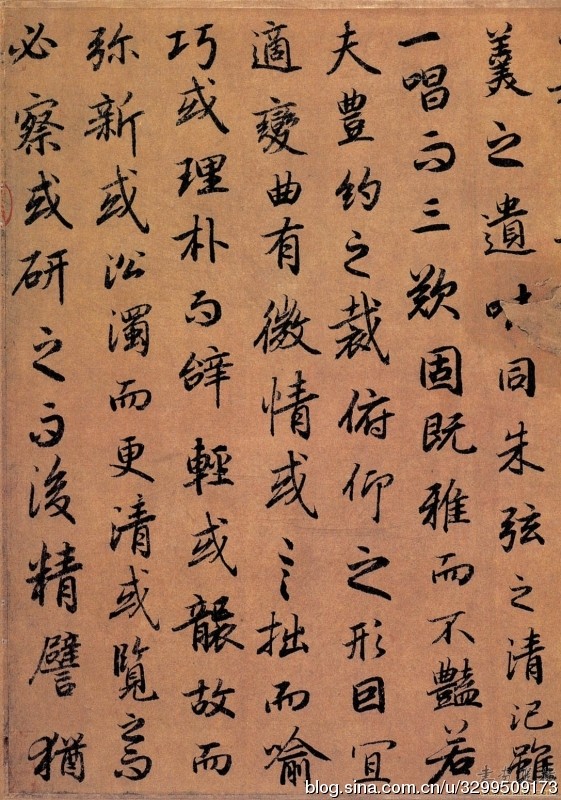 羙之遺味同朱弦之清氾雖
一唱而三歎固既雅而不豔若
夫豐約之裁俯仰之形因宜
適變曲有微情或言拙而喻
巧或理朴而辝輕或襲故而
弥新或沿濁而更清或覽之而
必察或研之而後精譬猶
blog.sina.com.cn/u/3299509173